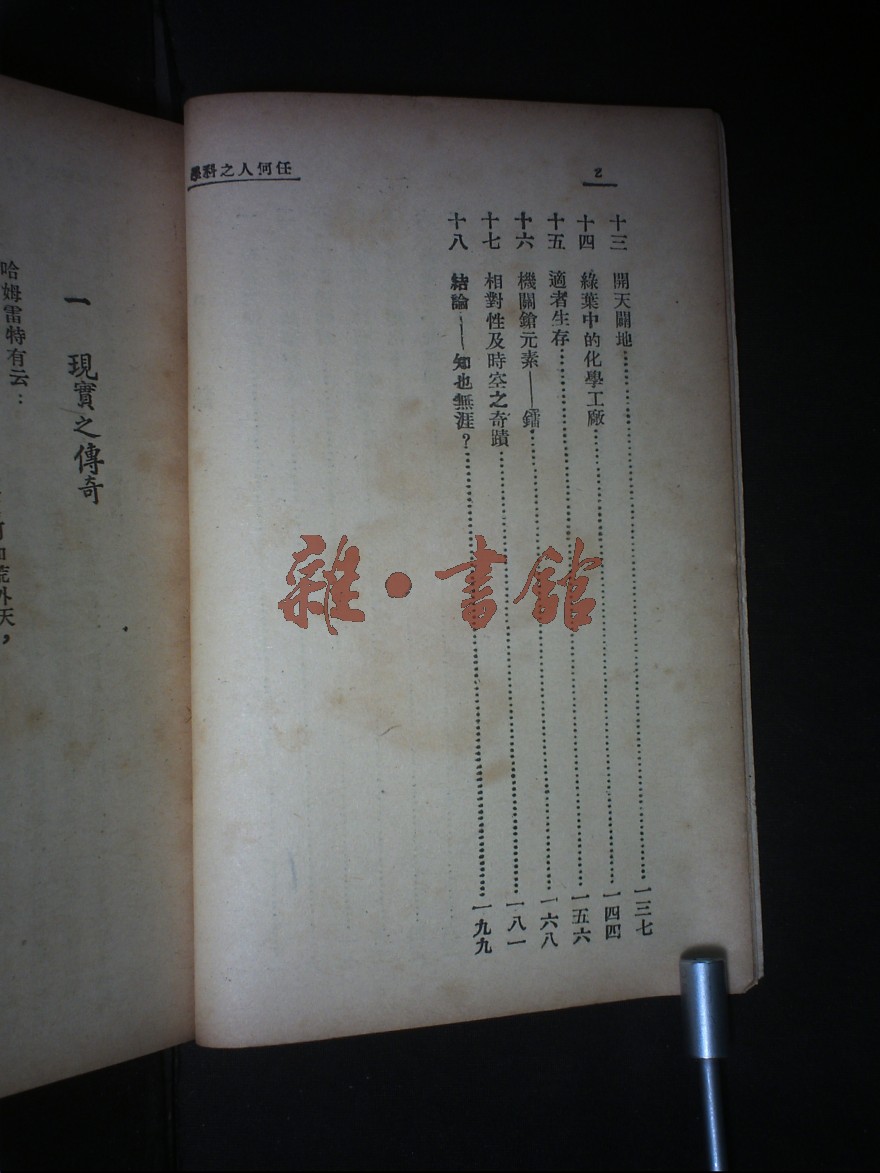 任何人之科學
2
十三 開天闢地……一三七
十四 綠葉中的化學工廠……一四四
十五 適者生存……一五六
十六 機關鎗元素——鐳……一六八
十七 相對性及時空之奇蹟……一八一
十八 結論——知也無涯？……一九九
一 現實之傳奇
哈姆雷特有云：
外天，
雜·書館